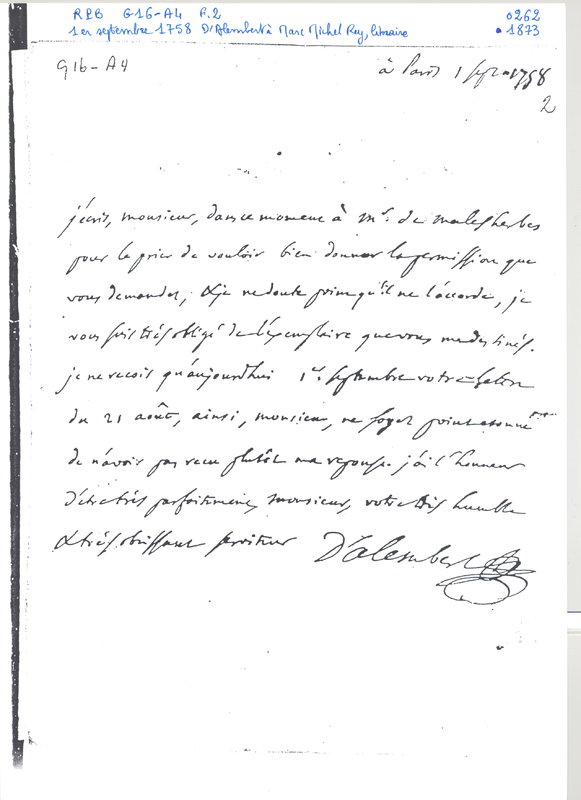 RPB G16-A4 F.2 0262
1er septembre 1758 D'Alembert à Marc Michel Rey, libraire • 1873
G16-A4
à Paris 1 sept. 1758
2
j'écris, monsieur, dans ce moment à Mr. de malesherbes
pour le prier de vouloir bien donner la permission que
vous demandez, & je ne doute point qu'il ne l'accorde, je
vous suis très obligé de l'exemplaire que vous me destinés.
je ne reçois qu'aujourdhui 1er. septembre votre lettre
du 21 août, ainsi, monsieur, ne soyez point etonné
de n'avoir pas reçu plutôt ma reponse. j'ai l'honneur
d'etre très parfaitement, monsieur, votre très humble
& très obeissant serviteur D'alembert